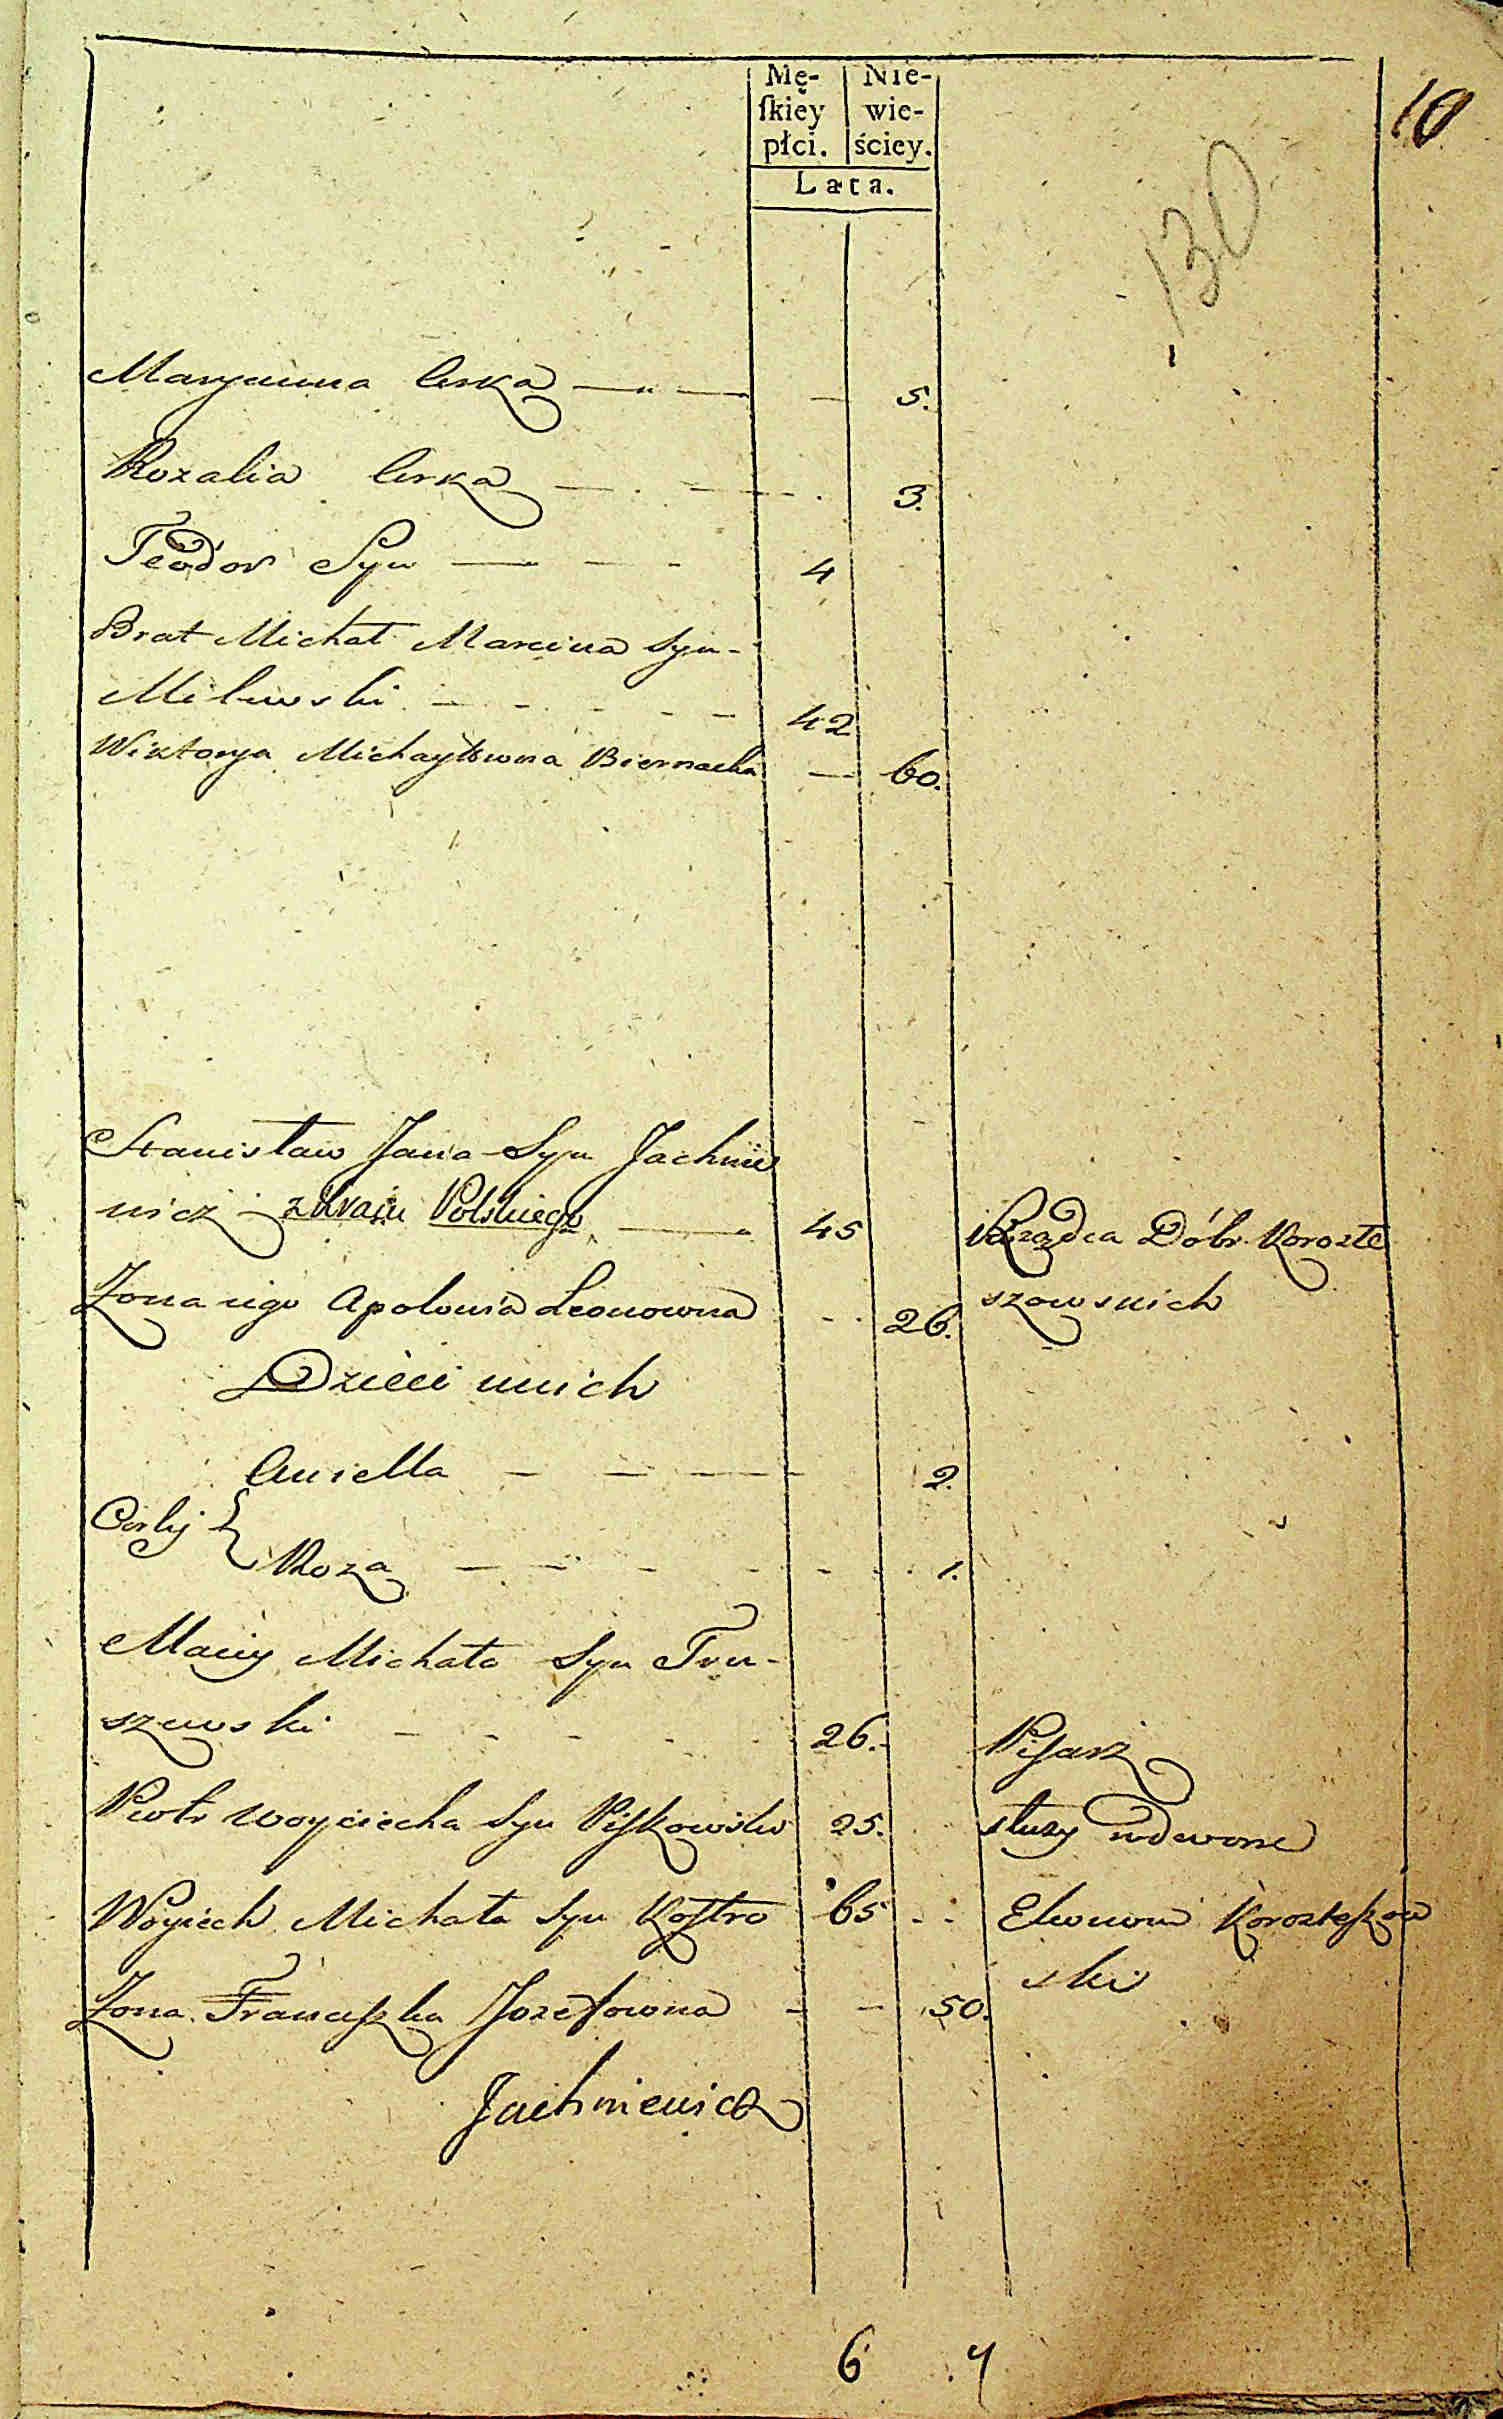 10
130
Mę-
ſkiey
płci.
Nie-
wie-
ściey.
Lata.
Maryanna Corka 5.
Rozalia Corka 3.
Teodor Syn 4
Brat Michał Marcina Syn
Milewski 42
Wiktorya Michayłowna Biernacka 60.
Stanisław Jana Syn Jachnie
wicz z Kraiu Polskiego 45
Rządca Dóbr Korozte
szowskich
Zona iego Apolonia Leonowna 26.
Dzieci unich
Aniella 2.
Corky
Roza 1.
Maciy Michała Syn Tru-
szewski 26.
Piſarz
Piotr Woyciecha Syn Piſkowski 25.
służy
Woyciech Michała Syn Koſtro 65
Ekonom Korozteſzow
ski
Zona Franciſzka Jozefowna 50.
Jachniewicz
6 7